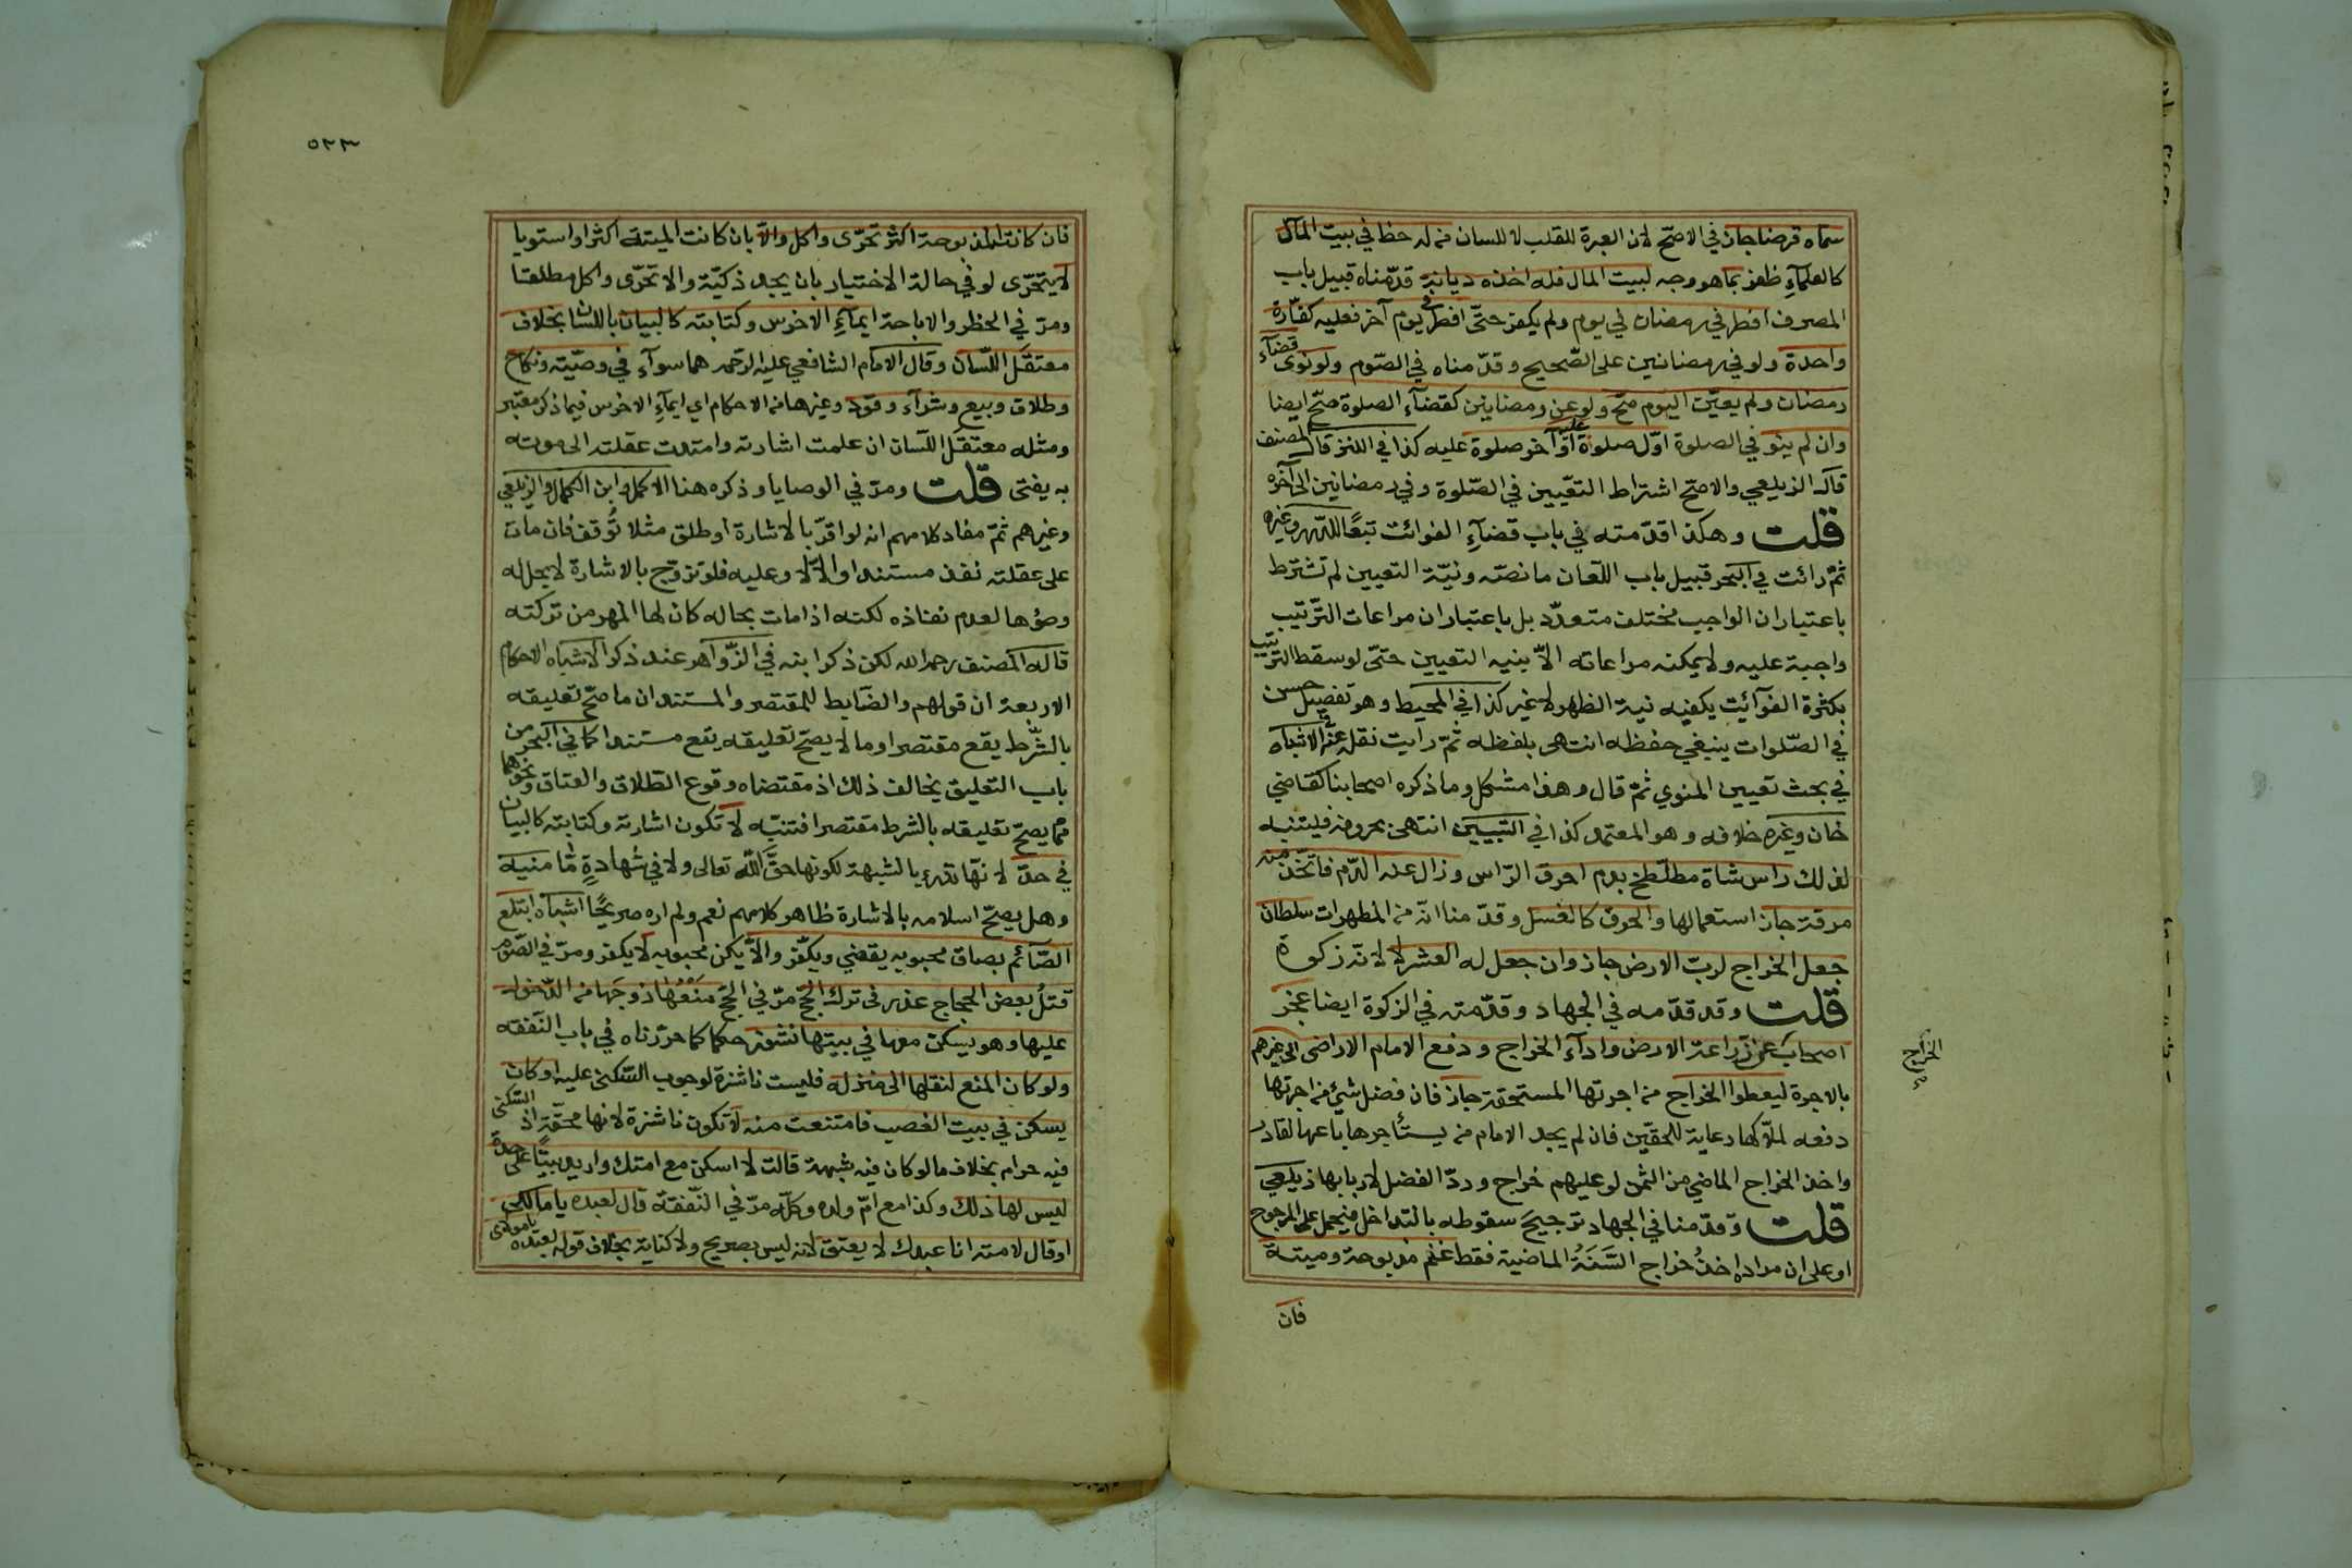 سماه قرضا جاز في الاصح لان العبرة للقلب لا للسان من له حظ في بيت المال
كالعلماءِ ظفر بما هو وجه لبيت المال فله اخذه ديانة قدّمناه قبيل باب
المصرف افطر في رمضان في يوم ولم يكفر حتّى افطر في يوم آخر فعليه كفّارة
واحدة ولو في رمضانين على الصّحيح وقدّمناه في الصّوم ولو نوى قضآءِ
رمضان ولم يعيّن اليوم صحّ ولو عن رمضانين كقضآءِ الصلوة صحّ ايضا
وان لم ينو في الصلوة اوّل صلوة عليه او آخر صلوة عليه كذا في الكنز قال المصنف
قال الزيلعي والاصح اشتراط التعّيين في الصّلوة وفي رمضانين الى آخره
قلت وهكذا قدّمته في باب قضآءِ الفوائت تبعًا للدّرر وغيره
ثمّ رائت في البحر قبيل باب اللعان ما نصّه ونيّة التعيين لم تشترط
باعتبار ان الواجب مختلف متعدّد بل باعتبار ان مراعات التّرتيب
واجبة عليه ولا يمكنه مراعاته الاّ بنيه التعيين حتّى لو سقط الترتيب
بكثرة الفوآئيت يكفيه نية الظهر لا غير كذا في المحيط وهو تفصيل حسن
في الصّلوات ينبغي حفظه انتهى بلفظه ثمّ رايت نقله عنه في الاشباه
في بحث تعيين المنوي ثمّ قال وهذا مشكل وما ذكره اصحابنا كقاضي
خان وغيره خلافه وهو المعتمد كذا في التبيين انتهى بحروفه فليتنبه
لذلك راس شاة مطلّطخ بدم احرق الرّاس وزال عنه الدّم فاتّخذ منه
مرقة جاز استعمالها والحرق كالغسل وقدّمنا انّه من المطهرات سلطان
جعل الخراج لربّ الارض جاز وان جعل له العشر لا لانّه زكوة
قلت وقد قدّمه في الجهاد وقدّمته في الزكوة ايضا عجز
اصحاب الخراج عن زراعة الارض وادآءِ الخراج ودفع الامام الاراضى الى غيرهم
بالاجرة ليعطوا الخراج من اجرتها المستحقة جاز فان فضل شيء من اجرتها
دفعه لملاّكها رعاية للحقّين فان لم يجد الامام من يستأجرها باعها لقادر
واخذ الخراج الماضي من الثمن لو عليهم خراج وردّ الفضل لاربابها زيلعي
قلت وقدّمنا في الجهاد ترجيح سقوطه بالتداخل فيحمل على المرجوح
او على ان مراده اخذُ خراج السَّنَةُ الماضية فقط غنم مذبوحة وميتة
فان
٥٢٣
فان كانت المذبوحة اكثر تحرّى واكل والاّ بان كانت الميتة اكثر او استويا
لا يتحرّى لو في حالة الاختيار بان يجد ذكيّة والا تحرّى واكل مطلقا
ومرّ في الحظر والاباحة ايمآءِ الاخرس وكتابته كالبيان باللسان بخلاف
معتقل اللّسان وقال الامام الشافعي عليه الرّحمه هما سوآء في وصيّته ونكاح
وطلاق وبيع وشرآء وقود وغيرها من الاحكام اي ايمآءِ الاخرس فيما ذكر معتبر
ومثله معتقل اللّسان ان علمت اشارته وامتدت عقلته الى موته
به يفتى قلت ومرّ في الوصايا وذكره هنا الاكمل وابن الكمال والزيلعي
وغيرهم ثمّ مفاد كلامهم انه لو اقرّ بالاشارة او طلق مثلا تُوقف فان مات
على عقلته نفذ مستندا والاّ لا وعليه فلو تزوّج بالاشارة لا يحل له
وطؤها لعدم نفاذه لكنه اذا مات بحاله كان لها المهر من تركته
قاله المصنف رحمه الله لكن ذكر ابنه في الزّواهر عند ذكر الاشباه الاحكام
الاربعة ان قولهم والضابط للمقتصر والمستند ان ما صحّ تعليقه
بالشّرط يقع مقتصرا وما لا يصحّ تعليقه يقع مستندا كما في البحر من
باب التعليق يخالف ذلك اذ مقتضاه وقوع الطّلاق والعتاق ونحوهما
ممّا يصحّ تعليقه بالشرط مقتصرا فتنبّه لا تكون اشارته وكتابته كالبيان
في حدّ لانّها تدرء بالشبهة لكونها حقَّ اللّٰه تعالى ولا في شهادةٍ مّا منيه
وهل يصحّ اسلامه بالاشارة ظاهر كلامهم نعم ولم اره صريحًا اشباه ابتلع
الصّآئم بصاق محبوبه يقضي ويكّفر والاّ يكن محبوبه لا يكفر ومرّ في الصّوم
قتلُ بعض الحجاج عذر في ترك الحجّ مرّ في الحجّ منعُها زوجَها من الدّخول
عليها وهو يسكن معها في بيتها نشوز حكما كما حرّرناه في باب النّفقه
ولو كان المنع لنقلها الى منزله فليست ناشزة لوجوب السّكنى عليه او كان
يسكن في بيت الغصب فامتنعت منه لا تكون ناشزة لانها محقّة اذ السّكنى
فيه حرام بخلاف ما لو كان فيه شبهة قالت لا اسكن مع امتك واريد بيتًا على حدة
ليس لها ذلك وكذا مع امّ ولده وكلّه مرّ في النّفقة قال لعبده يا مالكى
او قال لامته انا عبدك لا يعتق لانه ليس بصريح ولا كناية بخلاف قوله لعبده يا مولاى